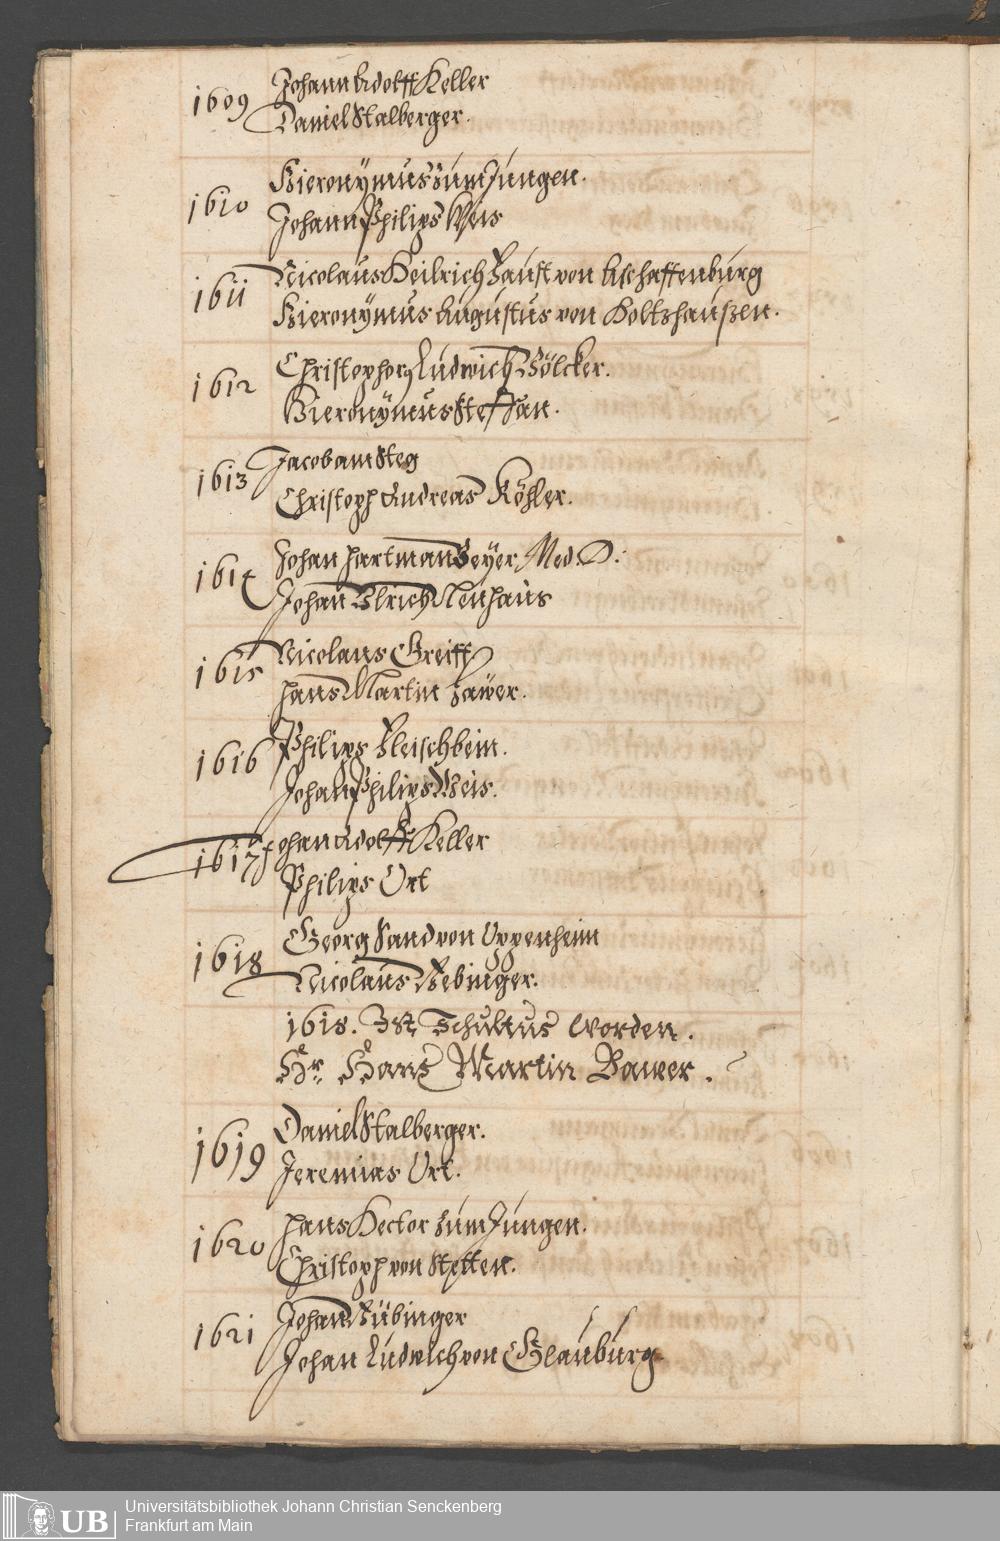 1609 Johann Adolff Keller
Daniel Stalberger.
1610 Hieronÿmus zum Jungen.
Johann Philips Weis
1611 Nicolaus Heilrich Faust von Aschaffenburg
Hieronÿmus Augustus von Holtzhaußen.
1612 Ludwich Völcker.
Hieronÿmus Steffan.
1613 Jacob am Steg
Christoph Andreas Köhler.
1614 Johan Hartman Beÿer, Med. D.
Johan Ulrich Neuhaus
1615 Nicolaus Greiff
Hans Martin Bawer.
1616 Philips Fleischbein.
Johan Philips Weis.
1617 Johan Adolff Keller
Philips Ort
1618 Georg Sand von Oppenheim
Nicolaus Rebinger.
1618. Ist Schultus worden.
Hr. Hans Martin Bawer.
1619 Daniel Stalberger.
Jeremias Ort.
1620 Hans Hector zum Jungen.
Christoph von Stetten.
1621 Johan Rübinger
Johan Ludwich von Glauburg
UB Universitätsbibliothek Johann Christian Senckenberg
Frankfurt am Main